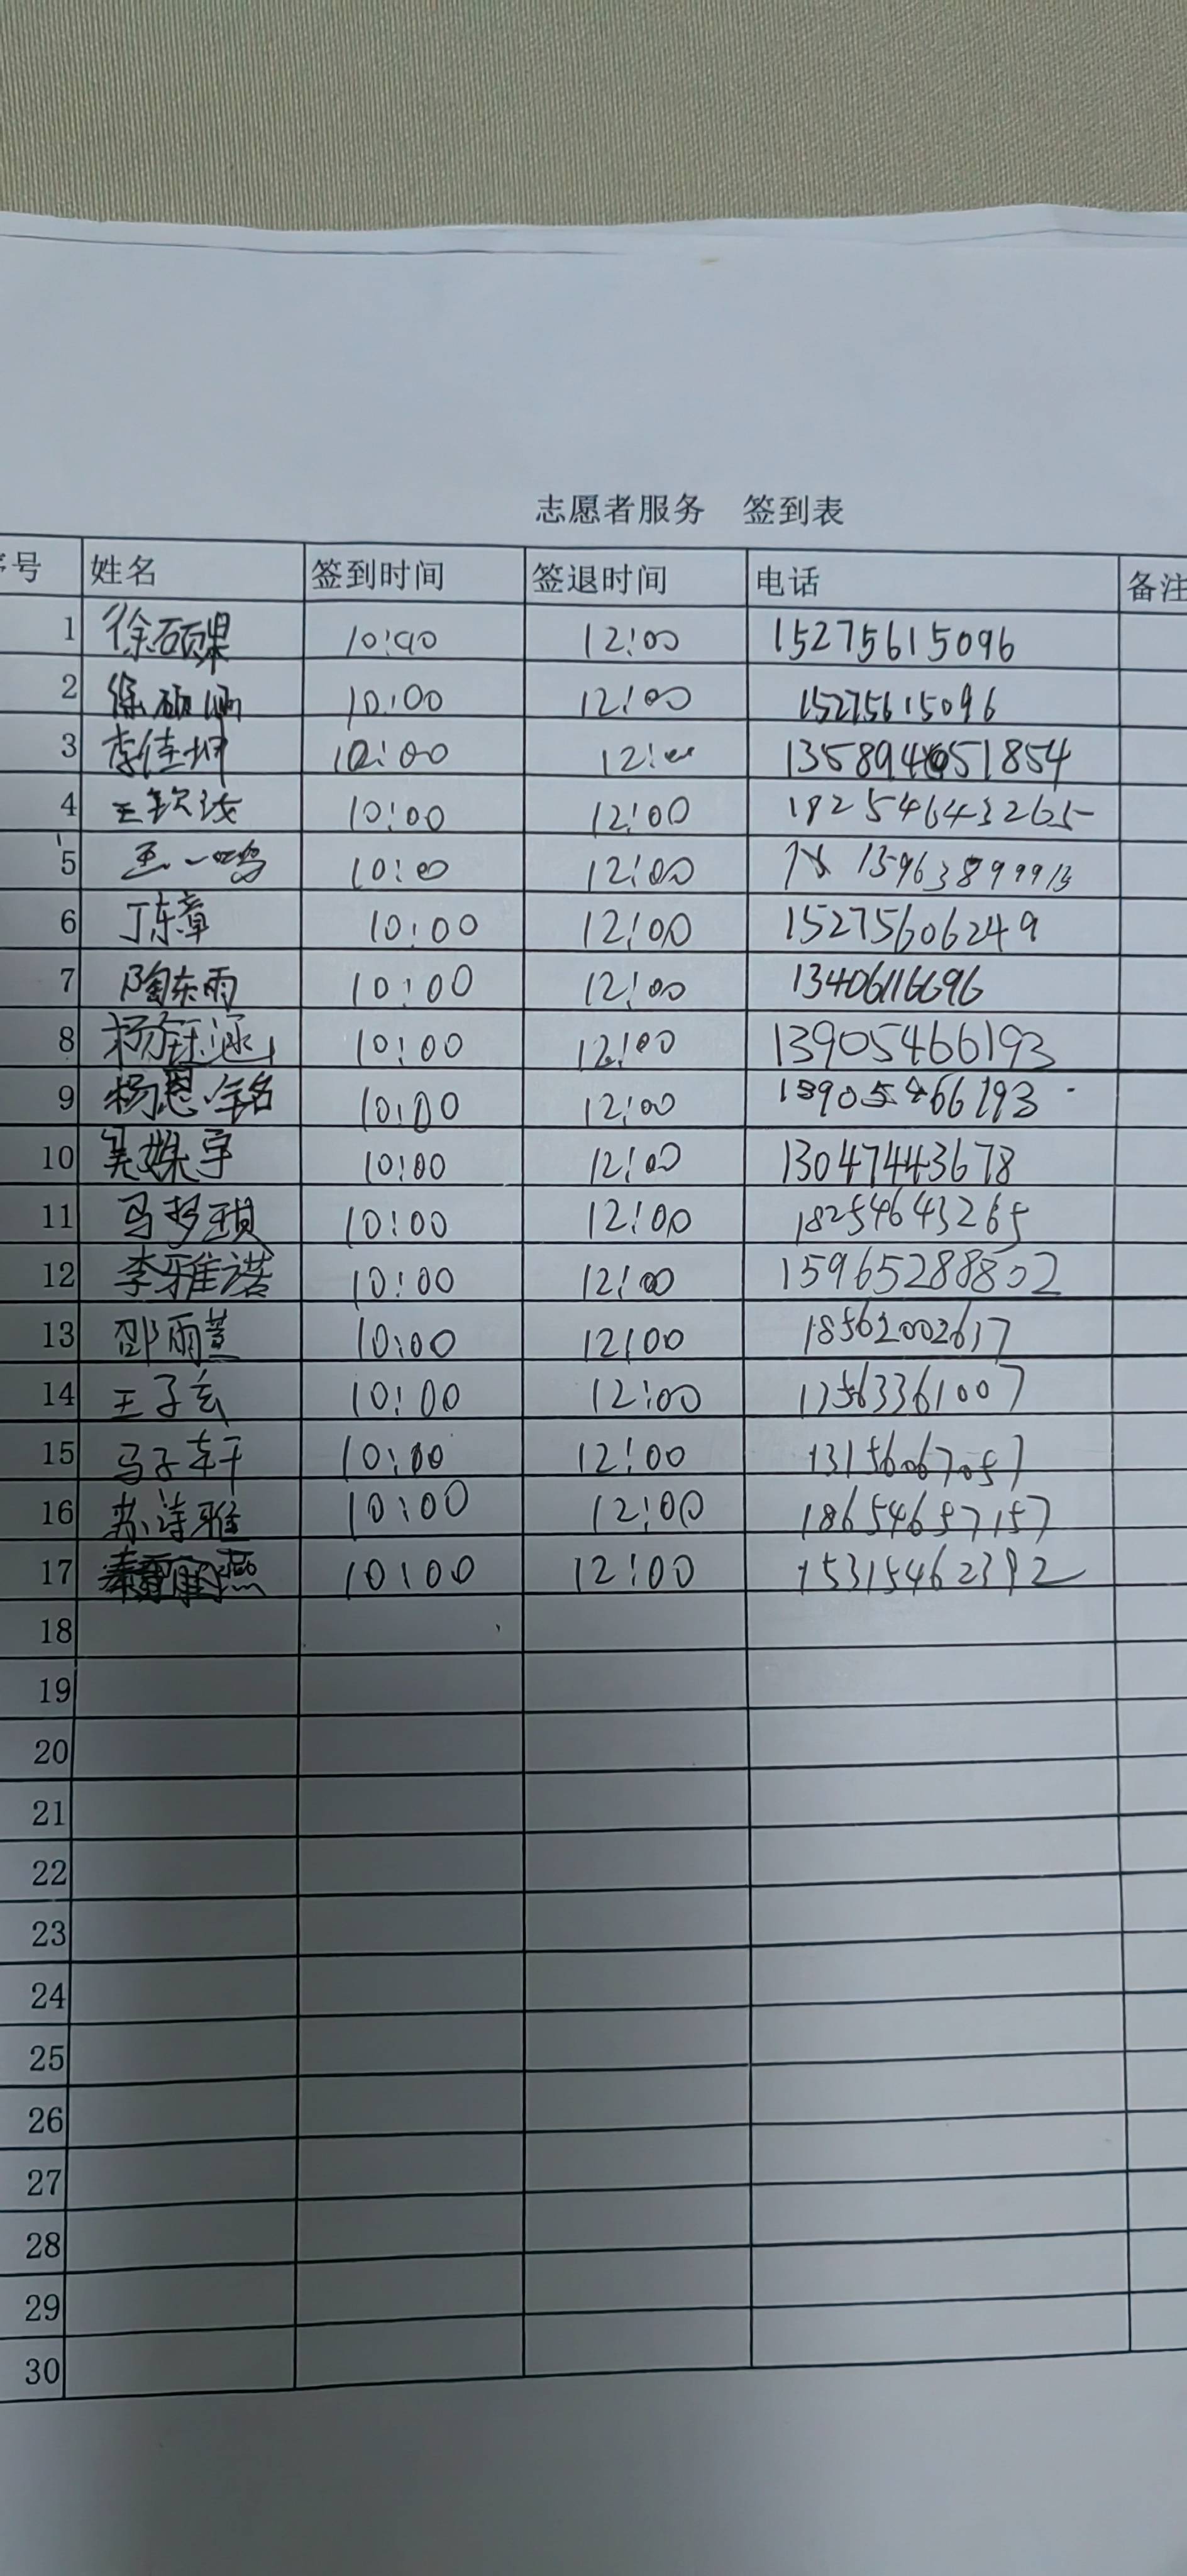 志愿者服务 签到表
序号 姓名 签到时间 签退时间 电话 备注
1 徐硕果 10:00 12:00 15275615096
2 徐硕涵 10:00 12:00 15275615096
3 李佳坤 10:00 12:00
4 10:00 12:00 18254643265
5 王一鸣 10:00 12:00 13963899913
6 丁东章 10:00 12:00 15275606249
7 陶东雨 10:00 12:00 13406116696
8 杨钰涵 10:00 12:00 13905466193
9 杨恩铭 10:00 12:00 13905466193
10 10:00 12:00 13047443678
11 10:00 12:00 18254643265
12 李雅诺 10:00 12:00 15965288802
13 邵雨萱 10:00 12:00 18562002617
14 王子玄 10:00 12:00 13563361007
15 马子轩 10:00 12:00 13156067057
16 苏诗雅 10:00 12:00 18654657157
17 10:00 12:00 15315462392
18
19
20
21
22
23
24
25
26
27
28
29
30